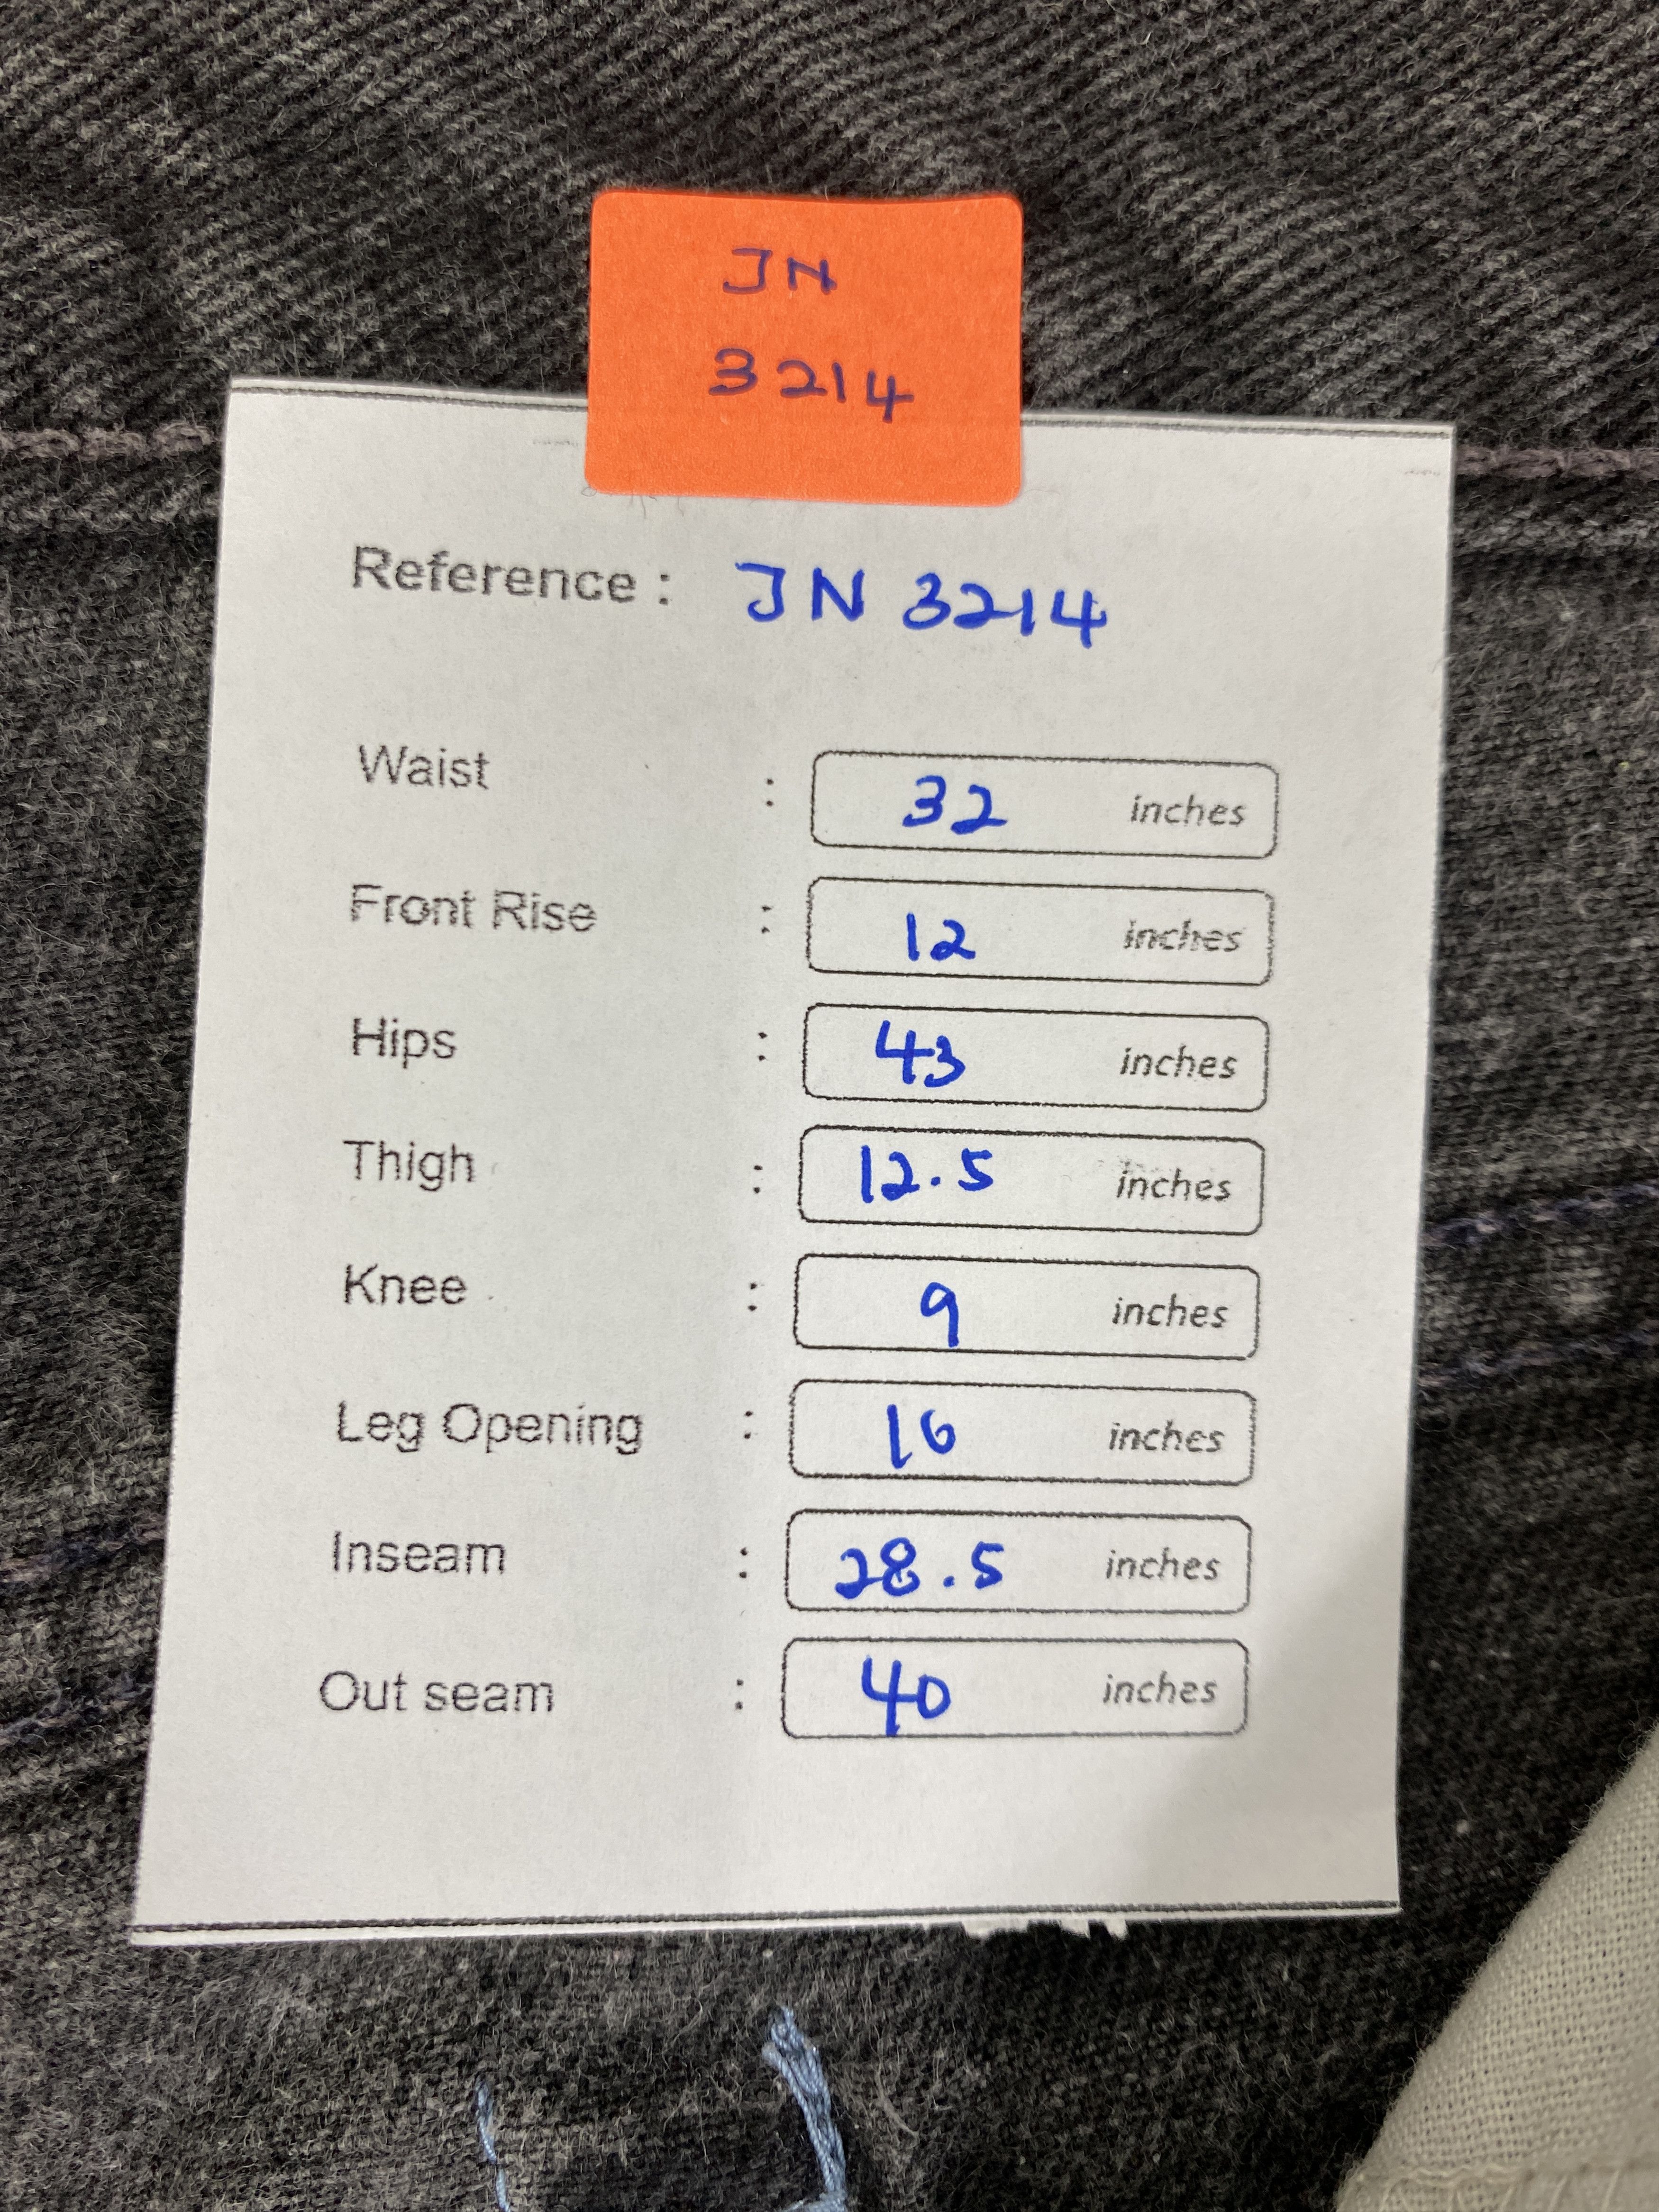 JN
3214
Reference : JN 3214
Waist : 32 inches
Front Rise : 12 inches
Hips : 43 inches
Thigh : 12.5 inches
Knee : 9 inches
Leg Opening : 16 inches
Inseam : 28.5 inches
Out seam : 40 inches